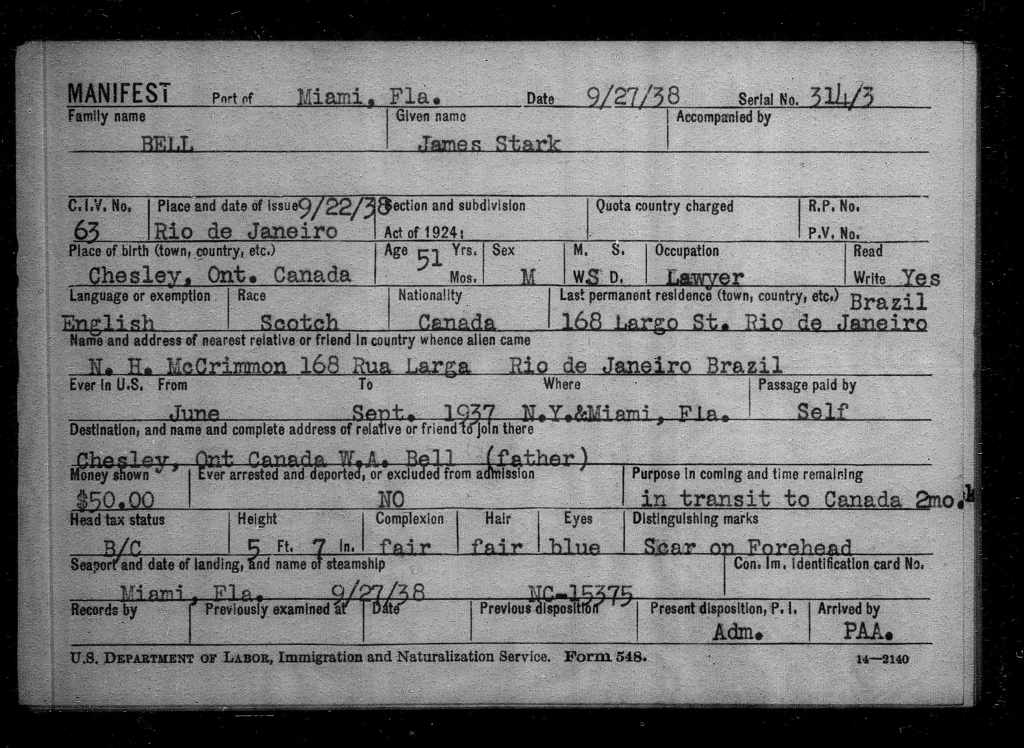 MANIFEST Port of Miami, Fla. Date 9/27/38 Serial No. 314/3
Family name Given name Accompanied by
BELL James Stark
C.I.V. No. Place and date of issue 9/22/38 Section and subdivision Quota country charged R.P. No.
63 Rio de Janeiro Act of 1924: P.V. No.
Place of birth (town, country, etc.) Age 51 Yrs. Sex M. S. Occupation Read
Chesley, Ont. Canada Mos. M WS D. Lawyer Write Yes
Language or exemption Race Nationality Last permanent residence (town, country, etc.) Brazil
English Scotch Canada 168 Largo St. Rio de Janeiro
Name and address of nearest relative or friend in country whence alien came
N. H. McCrimmon 168 Rua Larga Rio de Janeiro Brazil
Ever in U.S. From To Where Passage paid by
June Sept. 1937 N.Y.&Miami, Fla. Self
Destination, and name and complete address of relative or friend to join there
Chesley, Ont Canada W.A. Bell (father)
Money shown Ever arrested and deported, or excluded from admission Purpose in coming and time remaining
$50.00 NO in transit to Canada 2mo.
Head tax status Height Complexion Hair Eyes Distinguishing marks
B/C 5 Ft. 7 In. fair fair blue Scar on Forehead
Seaport and date of landing, and name of steamship Con. Im. Identification card No.
Miami, Fla. 9/27/38 NC-15375
Records by Previously examined at Date Previous disposition Present disposition, P. I. Arrived by
Adm. PAA.
U.S. DEPARTMENT OF LABOR, Immigration and Naturalization Service. Form 548. 14—2140